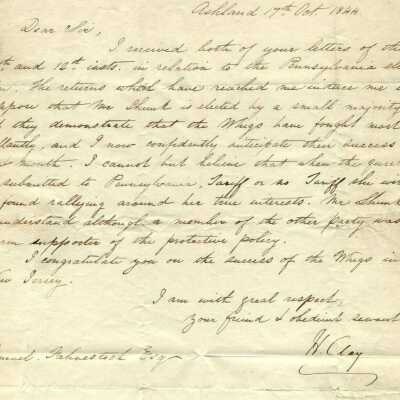 Ashland 17th Oct. 1844
Dear Sir,
I received both of your letters of the
th and 12th insts. in relation to the Pennsylvania ele
The returns which have reached me induce me
ppose that Mr Shunk is elected by a small majority
they demonstrate that the Whigs have fought most
llantly, and I now confidently anticipate their success
month. I cannot but believe that when the ques
submitted to Pennsylvania, Tariff or no Tariff she wi
found rallying around her true interests. Mr Shunk
understand although a member of the other party was
rm supporter of the protective policy.
I congratulate you on the success of the Whigs in
ew Jersey.
I am with great respect,
Your friend & obedient servant
H Clay
muel Fahnestock Esq